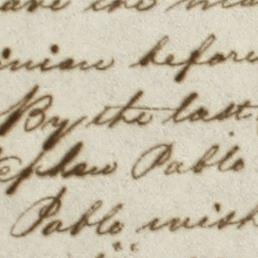 ave the ma
inion before
By the last
ephew Pablo
Pablo wish